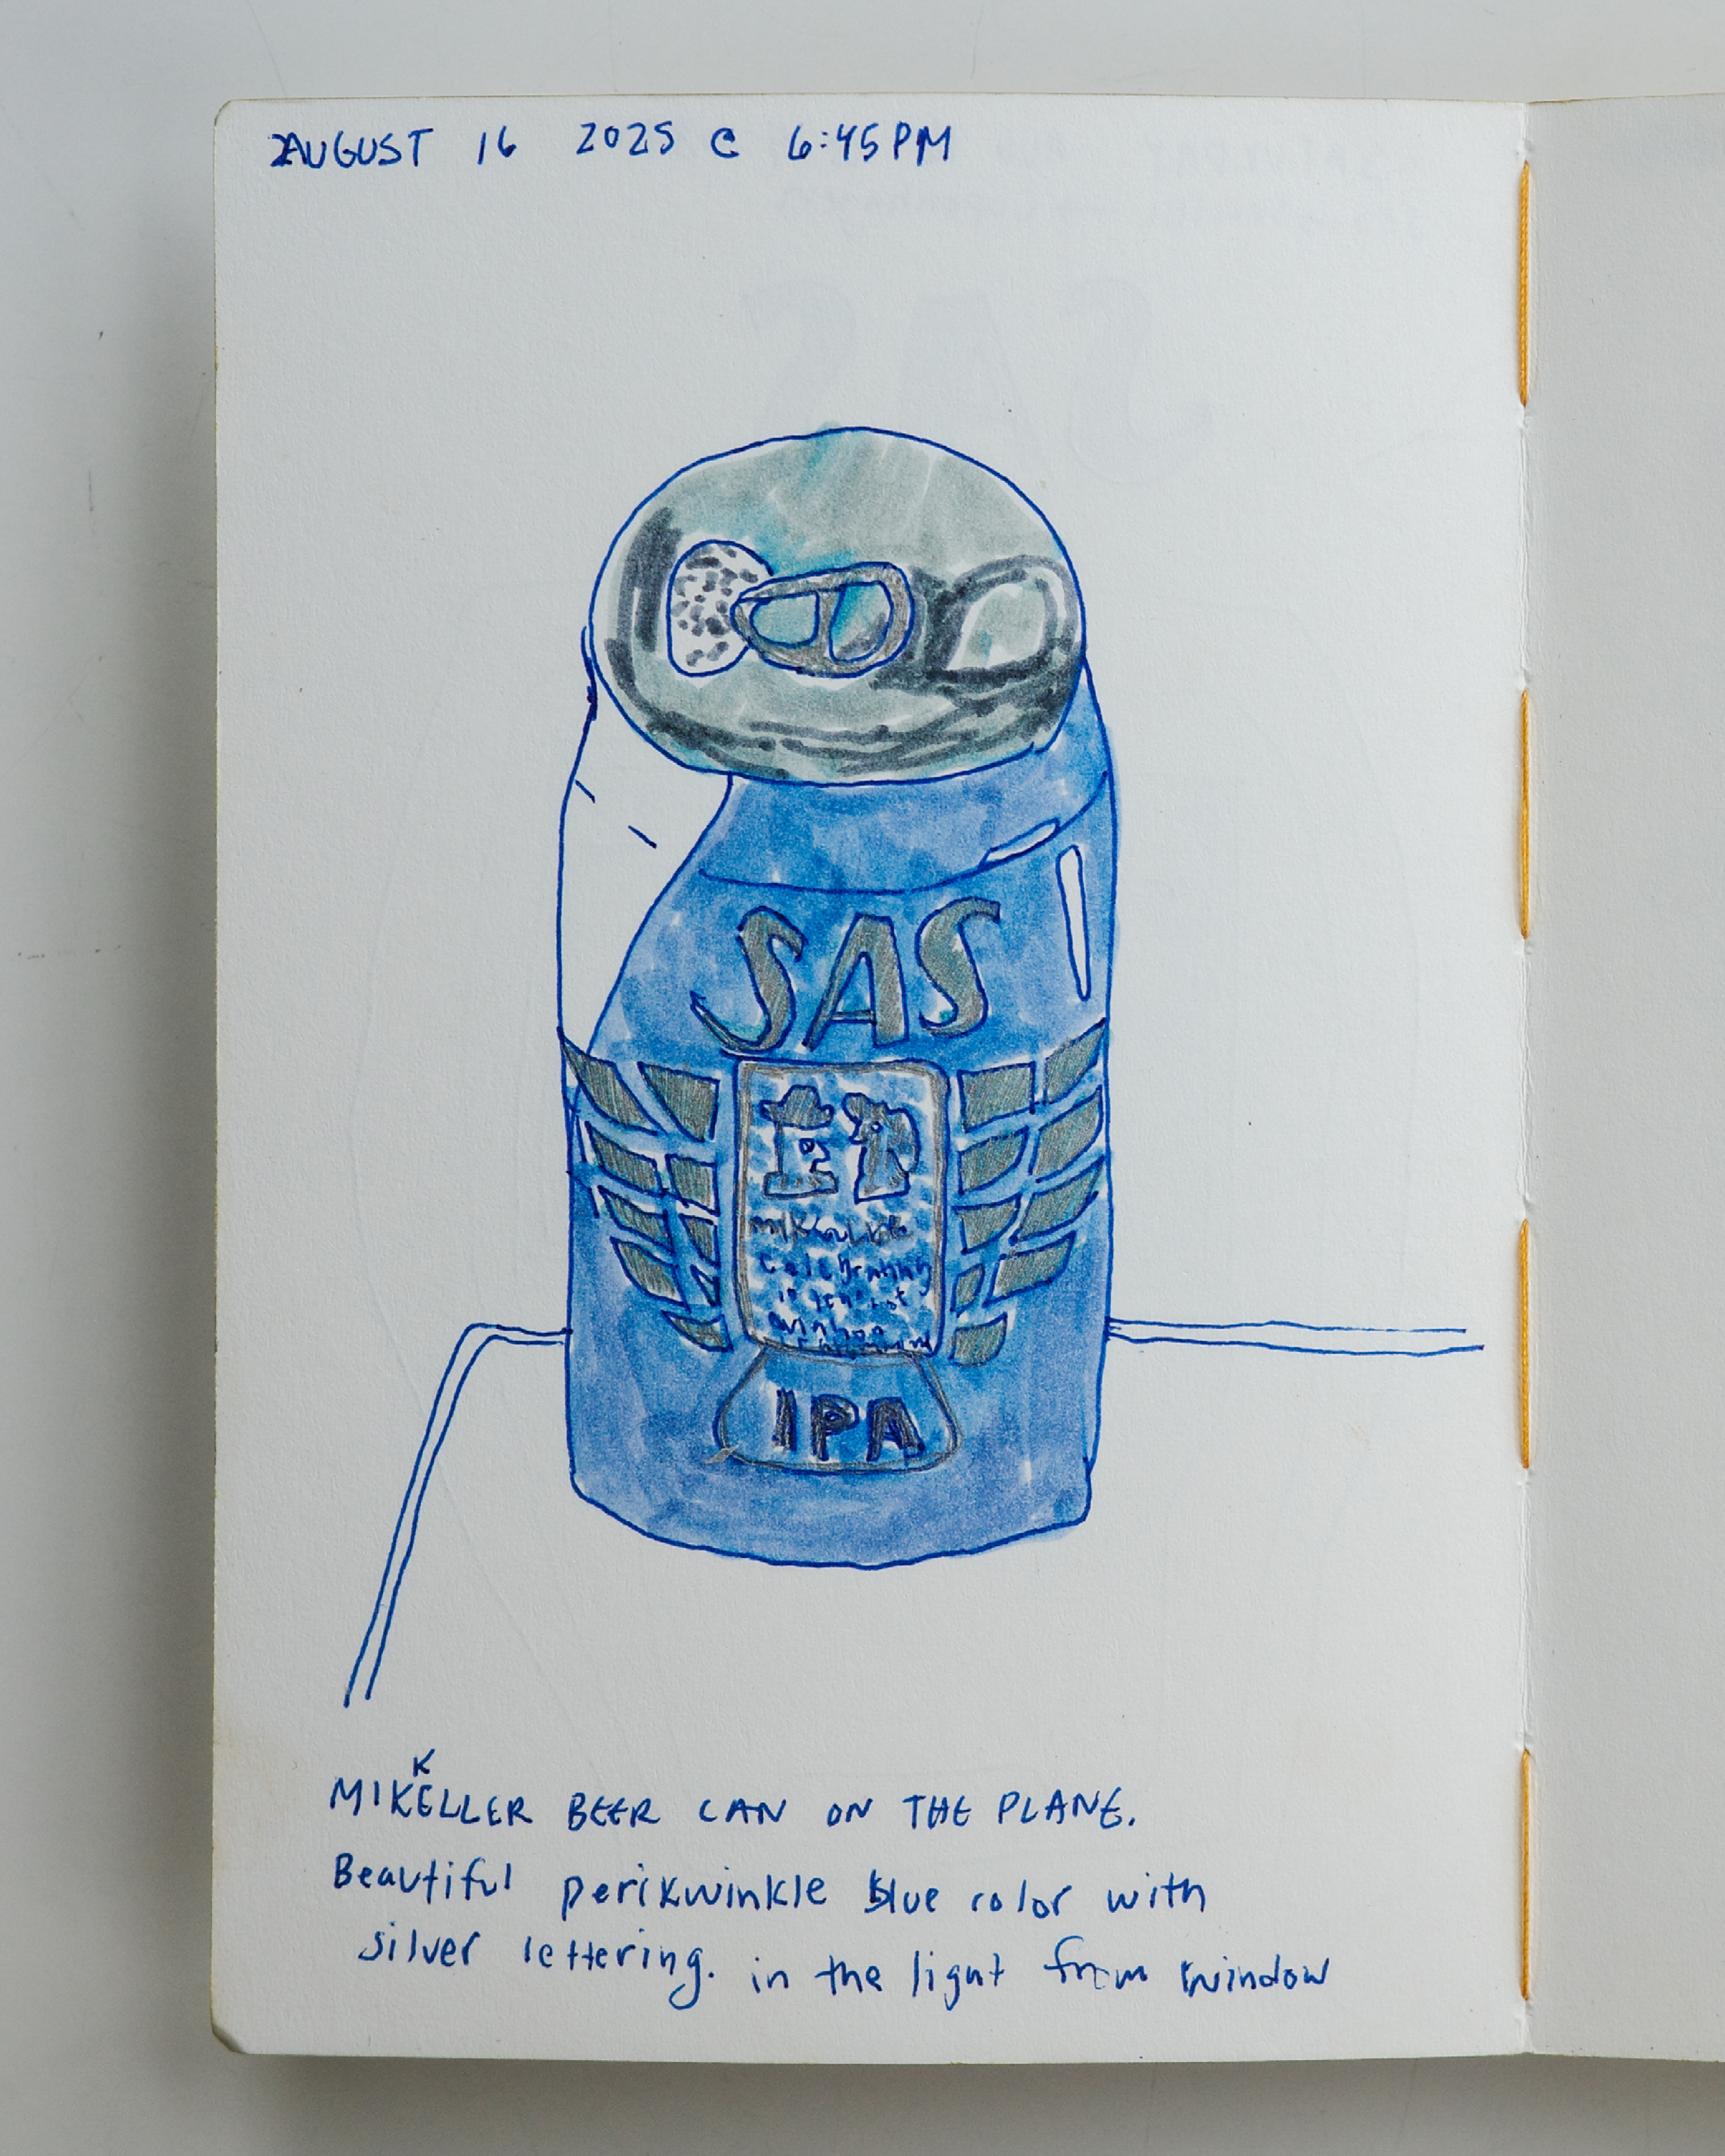 AUGUST 16 2025 @ 6:45PM
SAS
IPA
MIKKELLER BEER CAN ON THE PLANE.
Beautiful perikwinkle blue color with
silver lettering. in the light from window